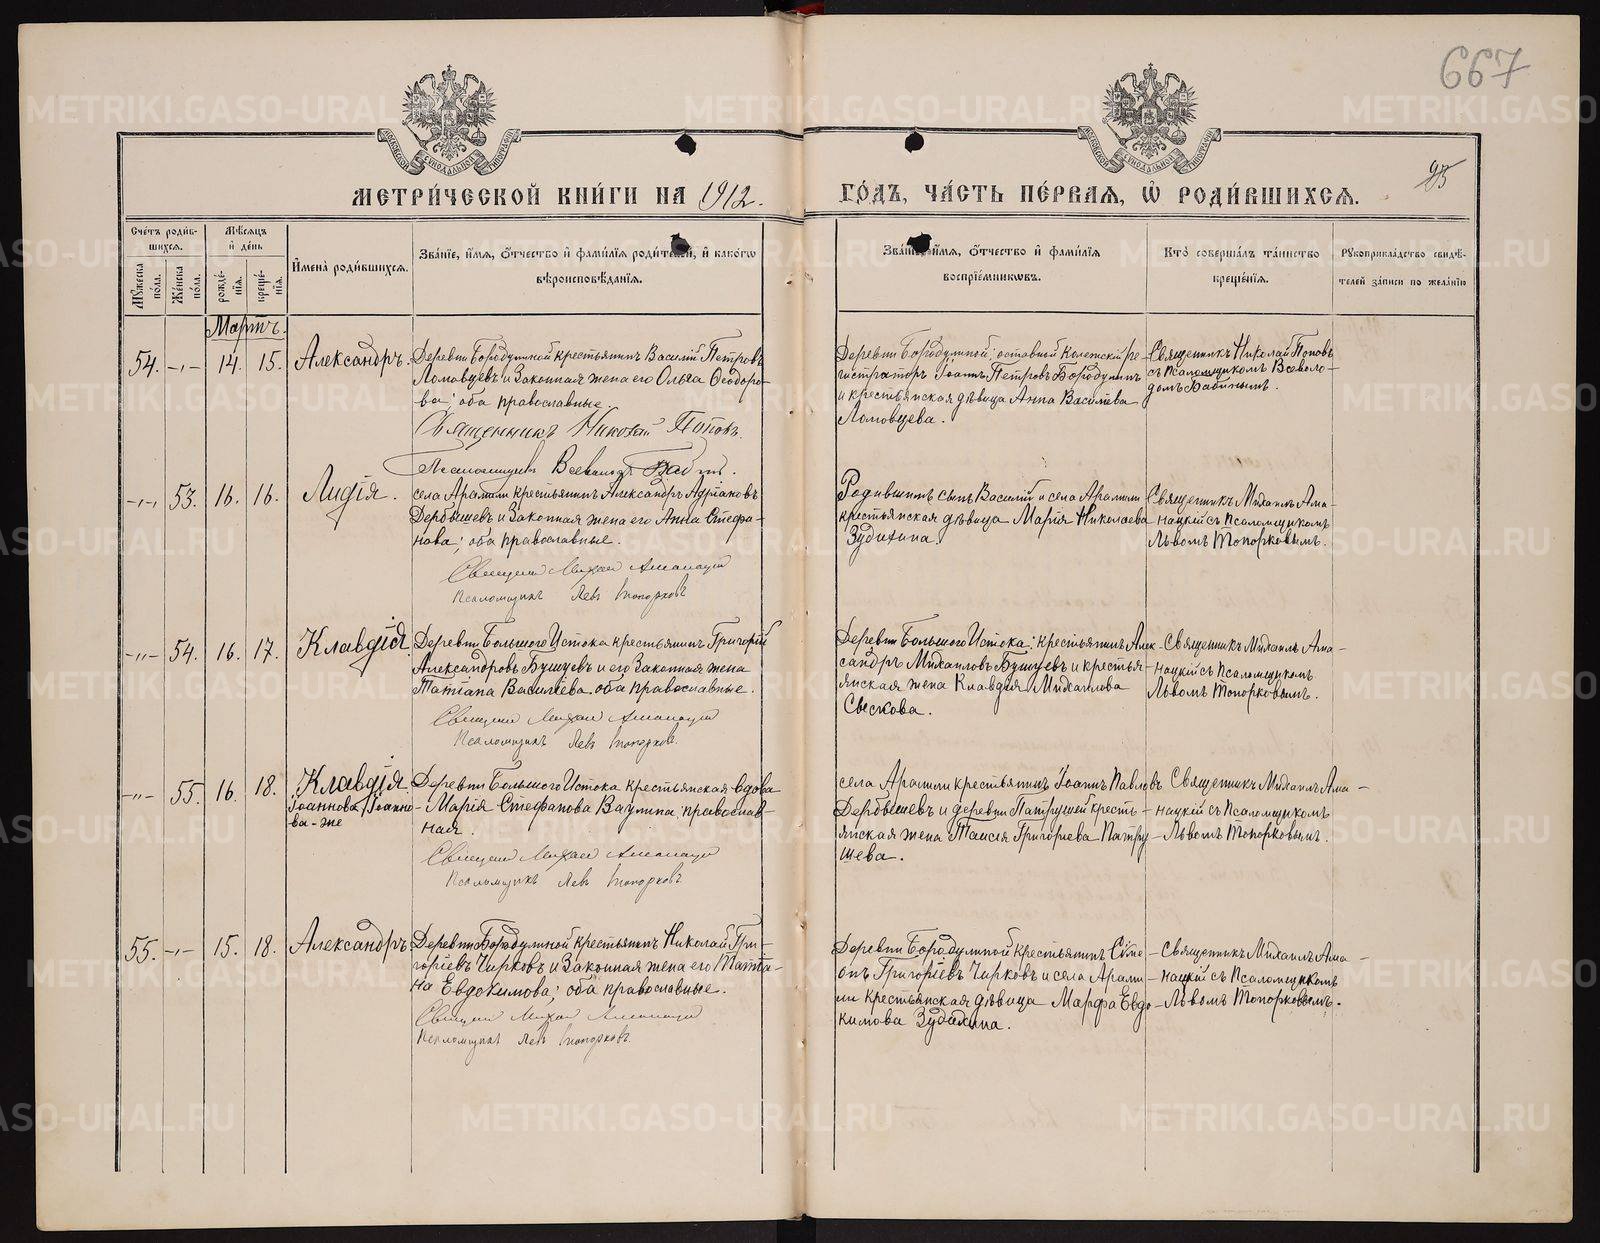 667
95
МЕТРИЧЕСКОЙ КНИГИ НА 1912. ГОДЪ, ЧАСТЬ ПЕРВАЯ, Ѡ РОДИВШИХСЯ.
Счетъ родив-
шихся.
Мужеска
пола.
Женска
пола.
Мѣсяцъ
и день
рожде-
нія.
креще-
нія.
Имена родившихся.
Званіе, имя, отчество и фамилія родителей, и какого
вѣроисповѣданія.
Званіе, имя, отчество и фамилія
воспріемниковъ.
Кто совершалъ таинство
крещенія.
Рукоприкладство свидѣ-
телей записи по желанію
Мартъ.
54. -„- 14. 15. Александръ.
Деревни Бородулиной крестьянинъ Василій Петровъ
Ломовцевъ и законная жена его Ольга Ѳеодоро-
ва; оба православные.
Священникъ Николай Поповъ.
Псаломщикъ Всеволодъ Бабинъ.
Деревни Бородулиной; отставной Колежскій ре-
гистраторъ Іоаннъ Петровъ Бородулинъ
и крестьянская дѣвица Анна Василіева
Ломовцева.
Священникъ Николай Поповъ
съ Псаломщикомъ Всеволо-
домъ Бабинымъ.
-„- 53. 16. 16. Лидія.
села Арамили крестьянинъ Александръ Адріановъ
Дербышевъ и законная жена его Анна Стефа-
нова; оба православные.
Священ Михаил Аманацкій
Псаломщикъ Левъ Топорковъ
Родившихъ сынъ Василій и села Арамили
крестьянская дѣвица Марія Николаева
Зудихина.
Священникъ Михаилъ Ама-
нацкій съ Псаломщикомъ
Львомъ Топорковымъ.
-„- 54. 16. 17. Клавдія
Деревни Большого Истока крестьянинъ Григорій
Александровъ Бушуевъ и его законная жена
Татіана Василіева, оба православные.
Священ Михаил Аманацкій
Псаломщикъ Левъ Топорковъ.
Деревни Большого Истока: крестьянинъ Алек-
сандръ Михаиловъ Бушуевъ и крестья-
янская жена Клавдія Михаилова
Сыскова.
Священникъ Михаилъ Ама-
нацкій съ Псаломщикомъ
Львомъ Топорковымъ.
-„- 55. 16. 18. Клавдія.
Іоаннова/Іоанно-
ва-же
Деревни Большого Истока крестьянская вдова
Марія Стефанова Ваулина; православ-
ная.
Священ Михаил Аманацкій
Псаломщикъ Левъ Топорковъ
села Арамили крестьянинъ Іоаннъ Павловъ
Дербышевъ и деревни Патрушей кресть-
янская жена Таисія Григорьева Патру-
шева.
Священникъ Михаилъ Ама-
нацкій съ Псаломщикомъ
Львомъ Топорковымъ.
55. -„- 15. 18. Александръ
Деревни Бородулиной крестьянинъ Николай Гри-
горіевъ Чирковъ и законная жена его Татіа-
на Евдокимова; оба православные.
Священ Михаил Аманацкій
Псаломщикъ Левъ Топорковъ.
Деревни Бородулиной крестьянинъ Симе-
онъ Григоріевъ Чирковъ и села Арами-
ли крестьянская дѣвица Марфа Евдо-
кимова Зудихина.
Священникъ Михаилъ Ама-
нацкій съ Псаломщикомъ
Львомъ Топорковымъ.
METRIKI.GASO-URAL.RU